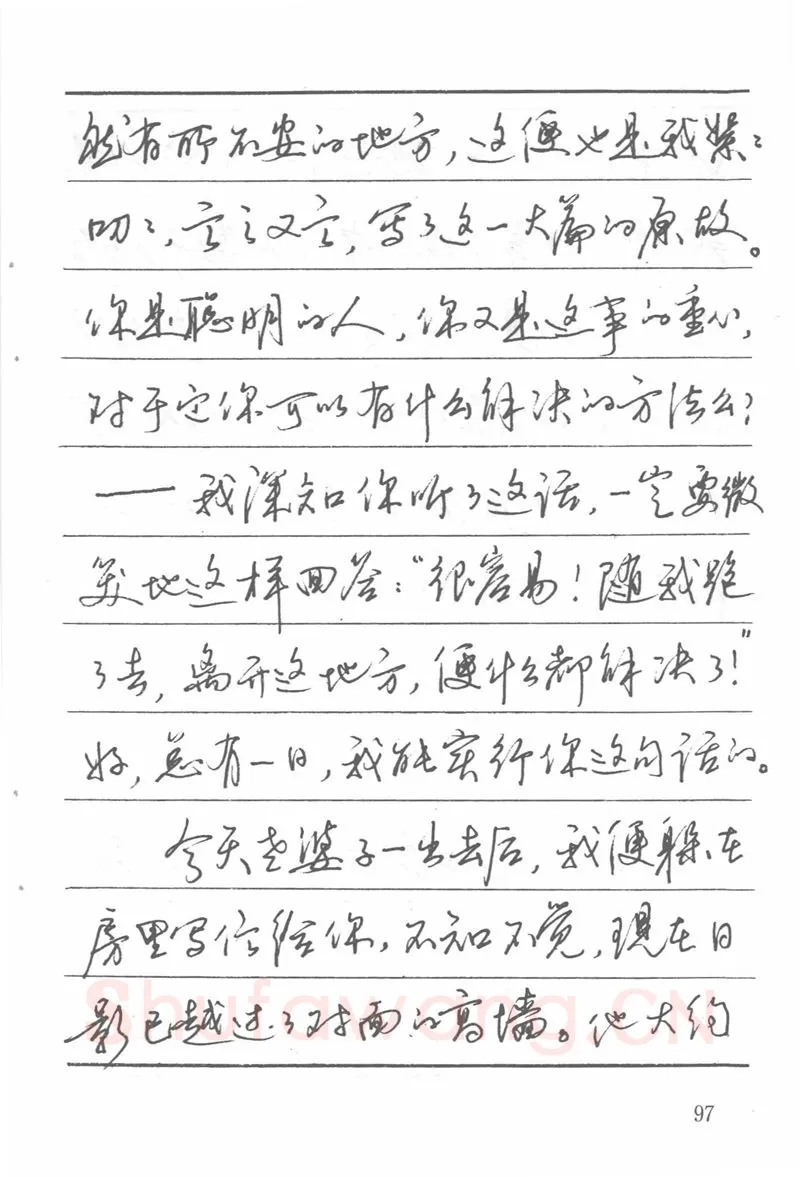 然有所不安的地方，这便也是我絮々
叨々，言之又言，写了这一大篇的原故。
你是聪明的人，你又是这事的重心，
对于它你可以有什么解决的方法么？
——我深知你听了这话，一定要微
笑地这样回答：“很容易！随我跑
了去，离开这地方，便什么都解决了！”
好，总有一日，我能实行你这句话的。
今天老婆子一出去后，我便躲在
房里写信给你，不知不觉，现在日
影已越过了对面的高墙。他大约
Shufawang.CN
97